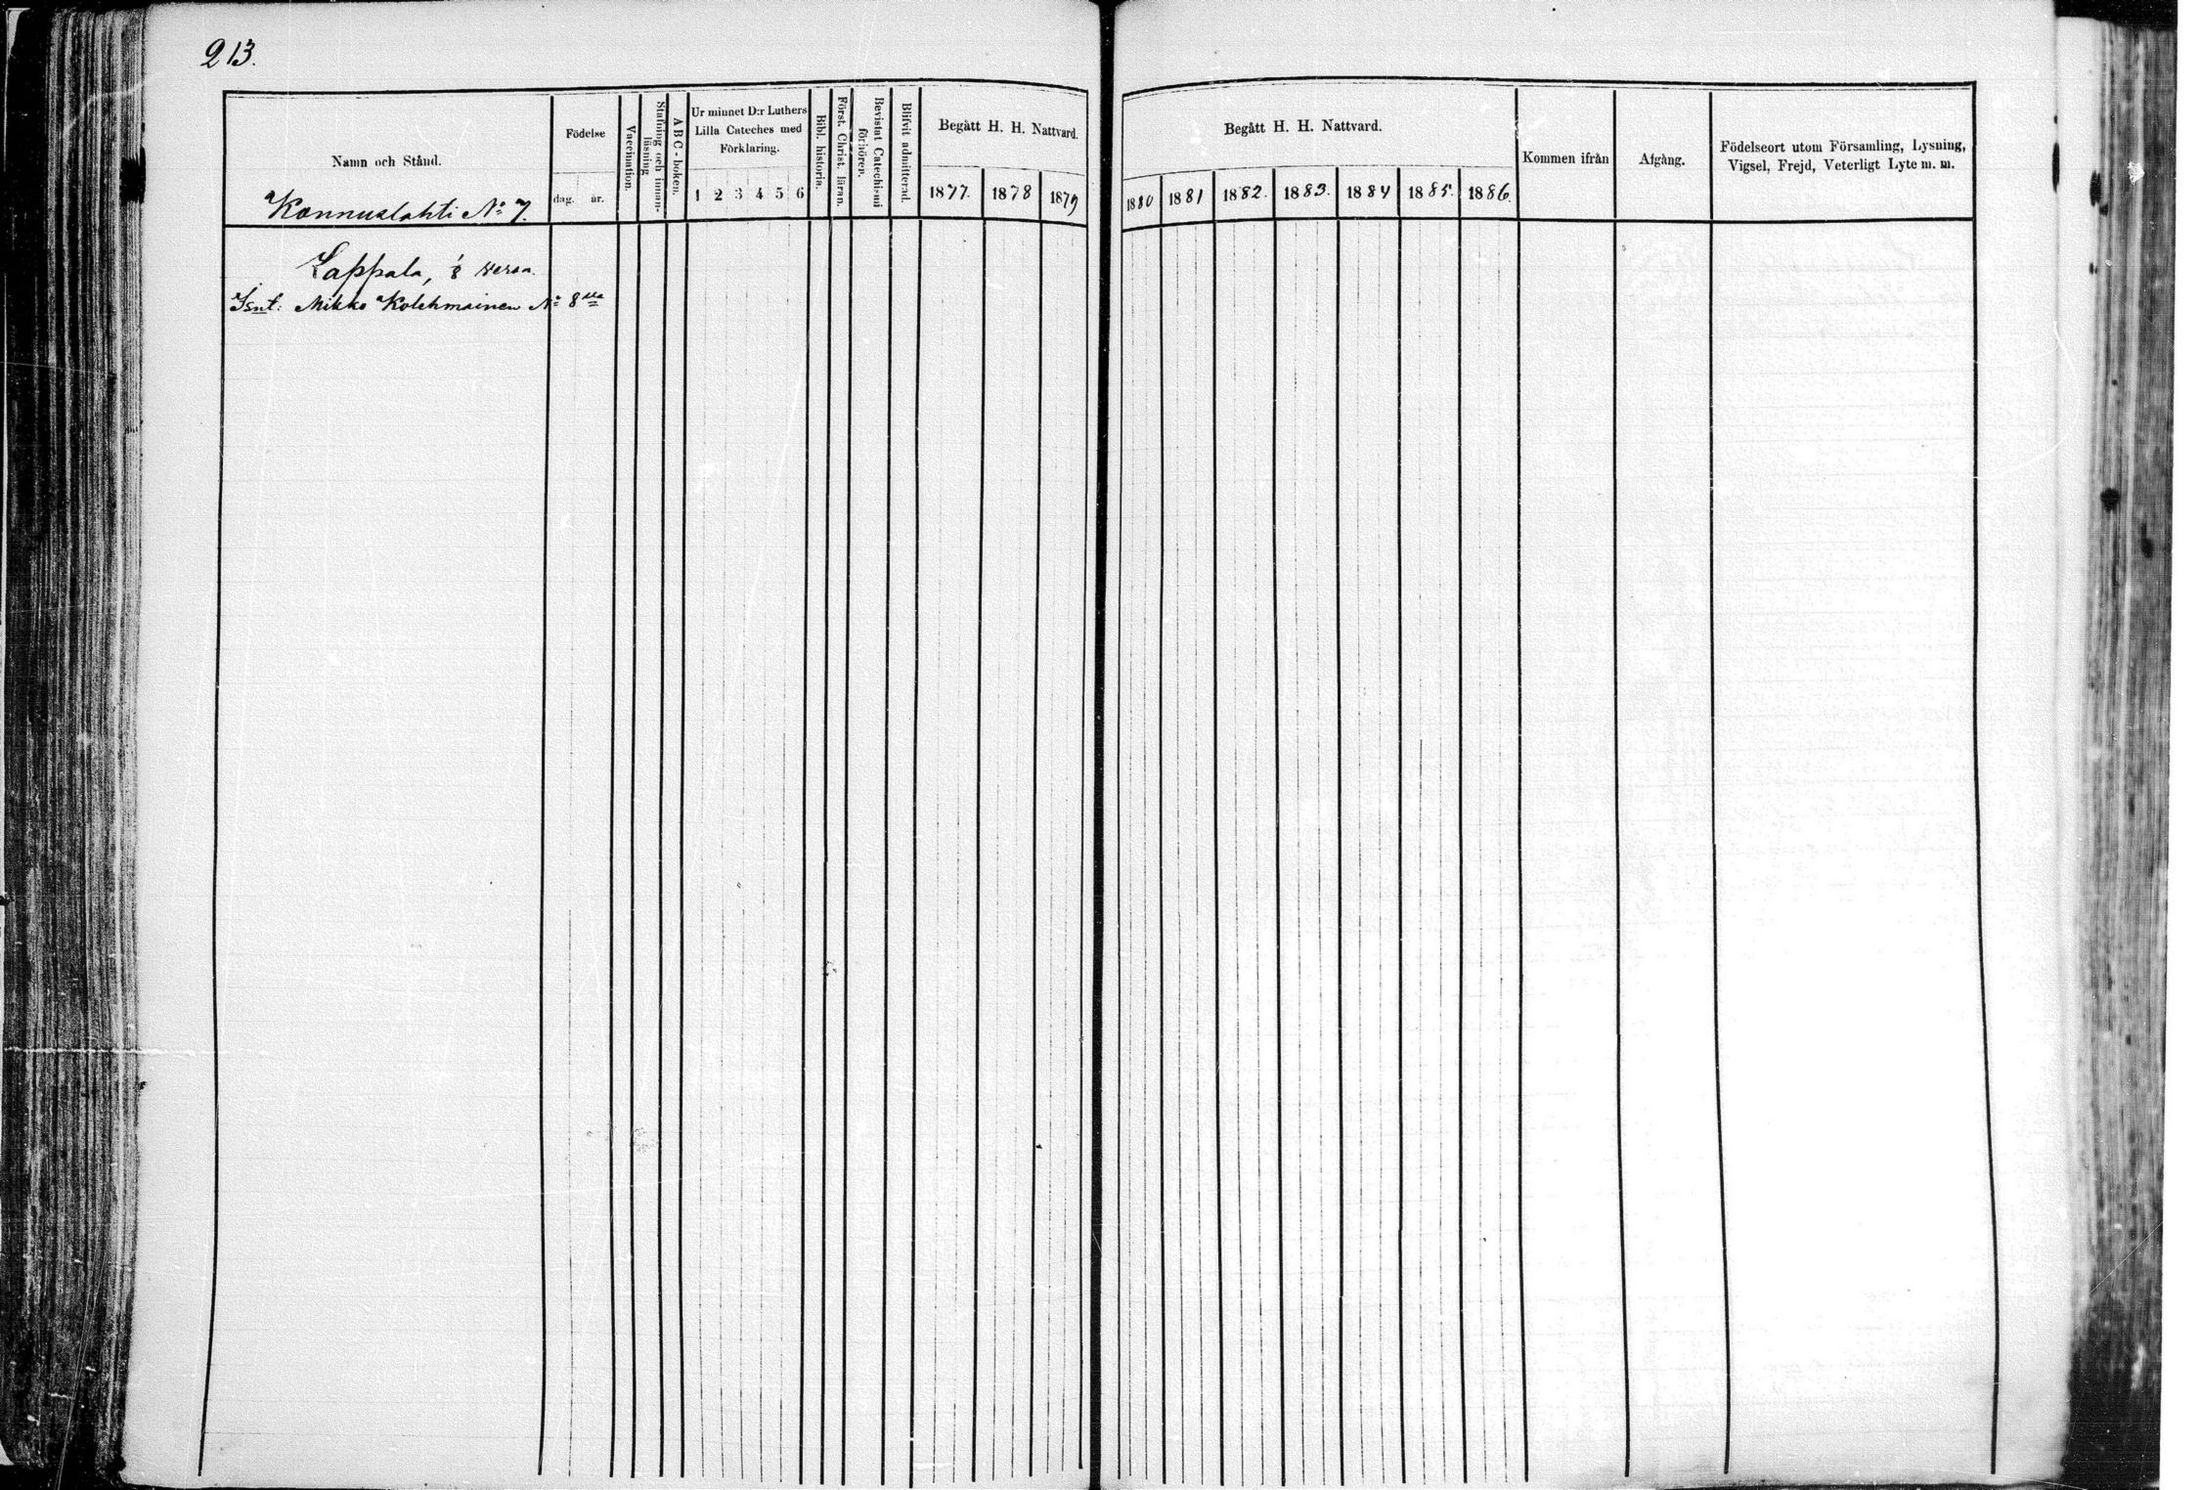 213.
Namn och Stånd.
Kannuslahti № 7.
Födelse
dag. år.
Vaccination.
Stafning och innan-
läsning
A B C - boken.
Ur minnet D:r Luthers
Lilla Cateches med
Förklaring.
1 2 3 4 5 6
Bibl. historia.
Först. Christ. läran.
Bevistat Catechismi
förhören.
Blifvit admitterad.
Begått H. H. Nattvard.
1877. 1878 1879
Begått H. H. Nattvard.
1880 1881 1882. 1883. 1884 1885. 1886.
Kommen ifrån
Afgång.
Födelseort utom Församling, Lysning,
Vigsel, Frejd, Veterligt Lyte m. m.
Lappala, 1/8 veroa.
Isnt: Mikko Kolehmainen № 8lla